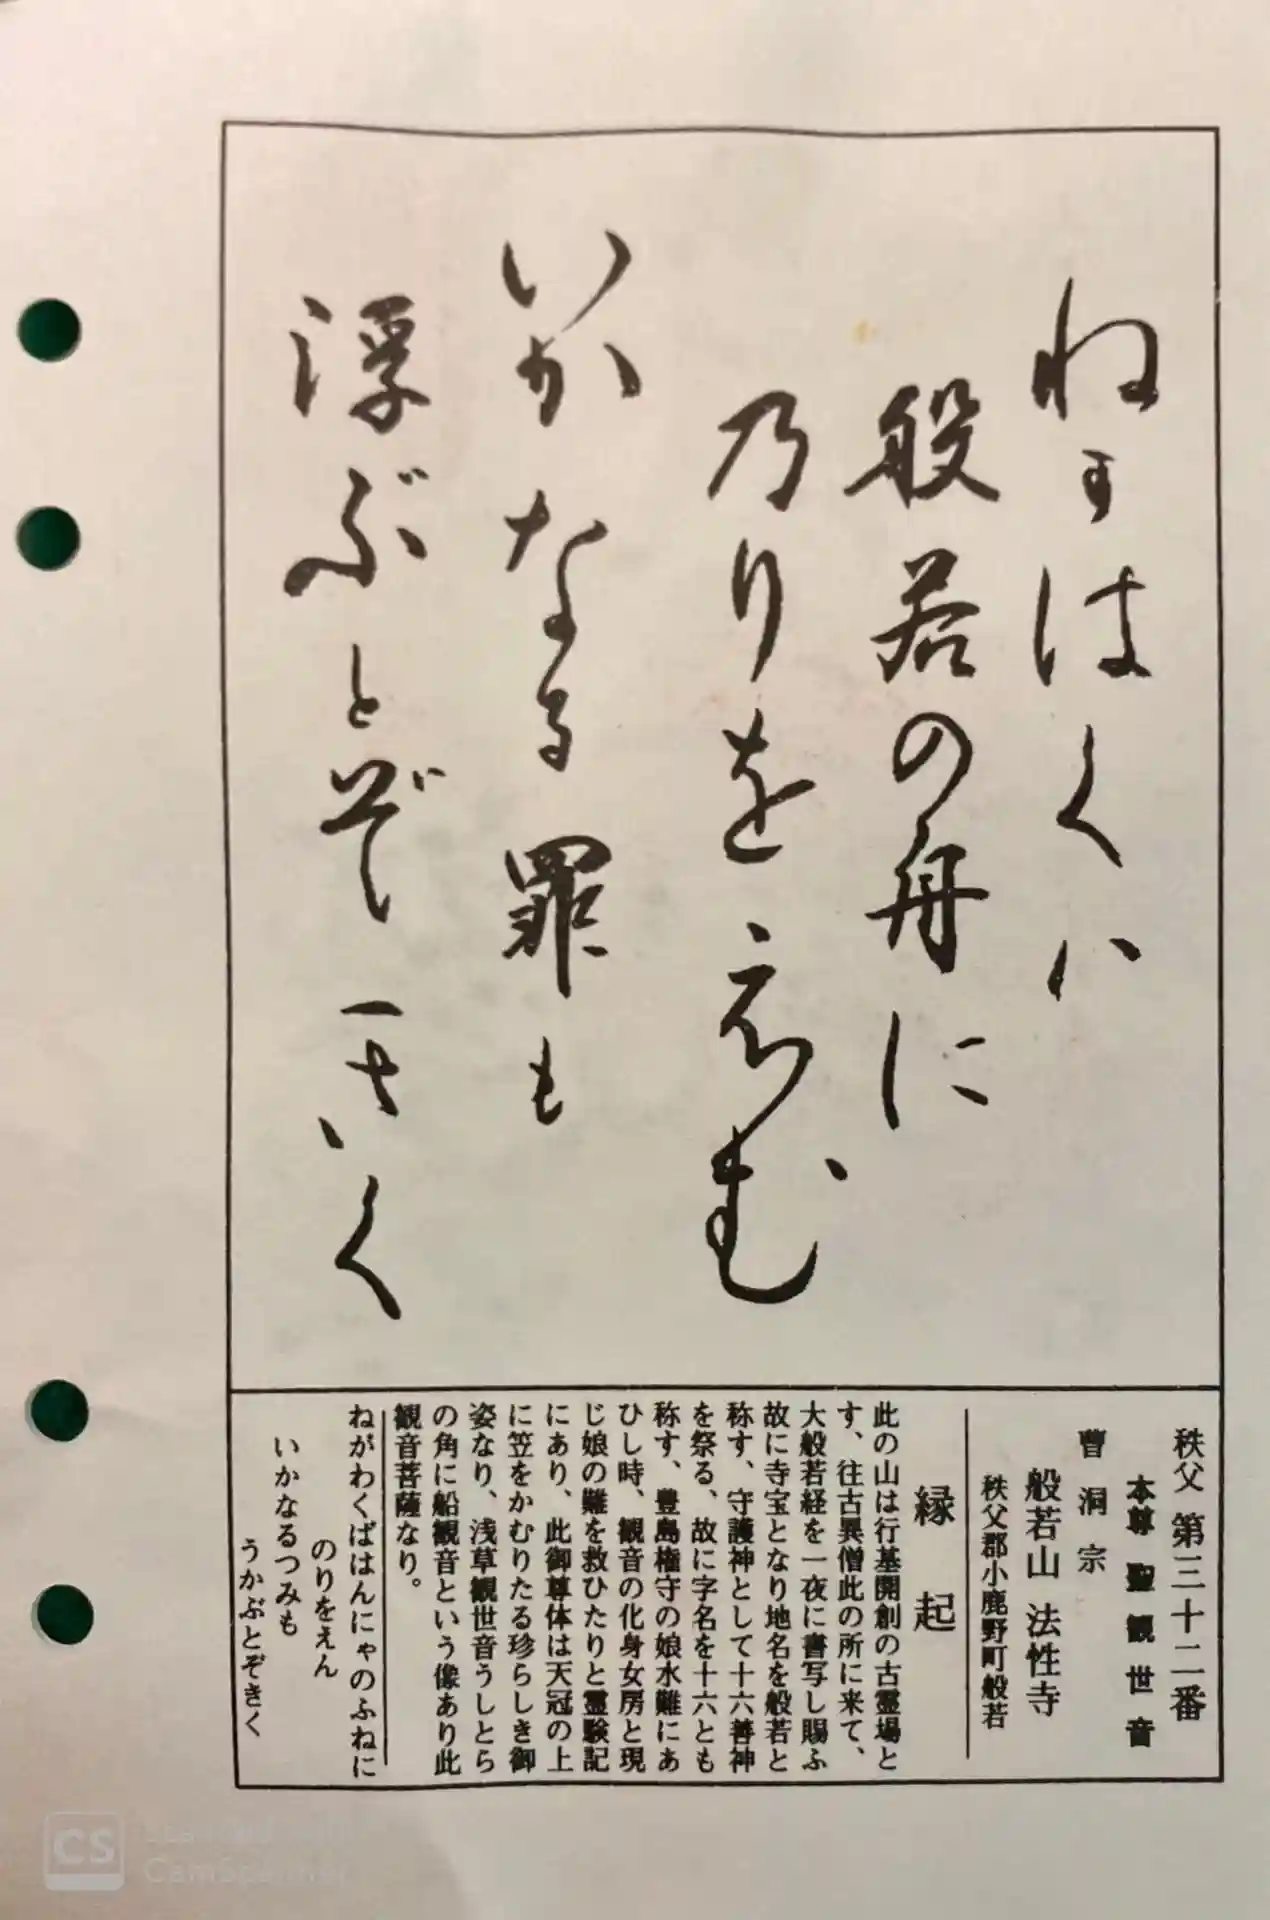 ねがはくハ
般若の舟に
乃りを衣む
いかなる罪も
浮ぶとぞきく
秩父 第三十二番
本尊 聖観世音
曹洞宗
般若山 法性寺
秩父郡小鹿野町般若
縁起
此の山は行基開創の古霊場と
す、往古異僧此の所に来て、
大般若経を一夜に書写し賜ふ
故に寺宝となり地名を般若と
称す、守護神として十六善神
を祭る、故に字名を十六とも
称す、豊島権守の娘水難にあ
ひし時、観音の化身女房と現
じ娘の難を救ひたりと霊験記
にあり、此御尊体は天冠の上
に笠をかむりたる珍らしき御
姿なり、浅草観世音うしとら
の角に船観音という像あり此
観音菩薩なり。
ねがわくばはんにゃのふねに
のりをえん
いかなるつみも
うかぶとぞきく
CS
CamScanner